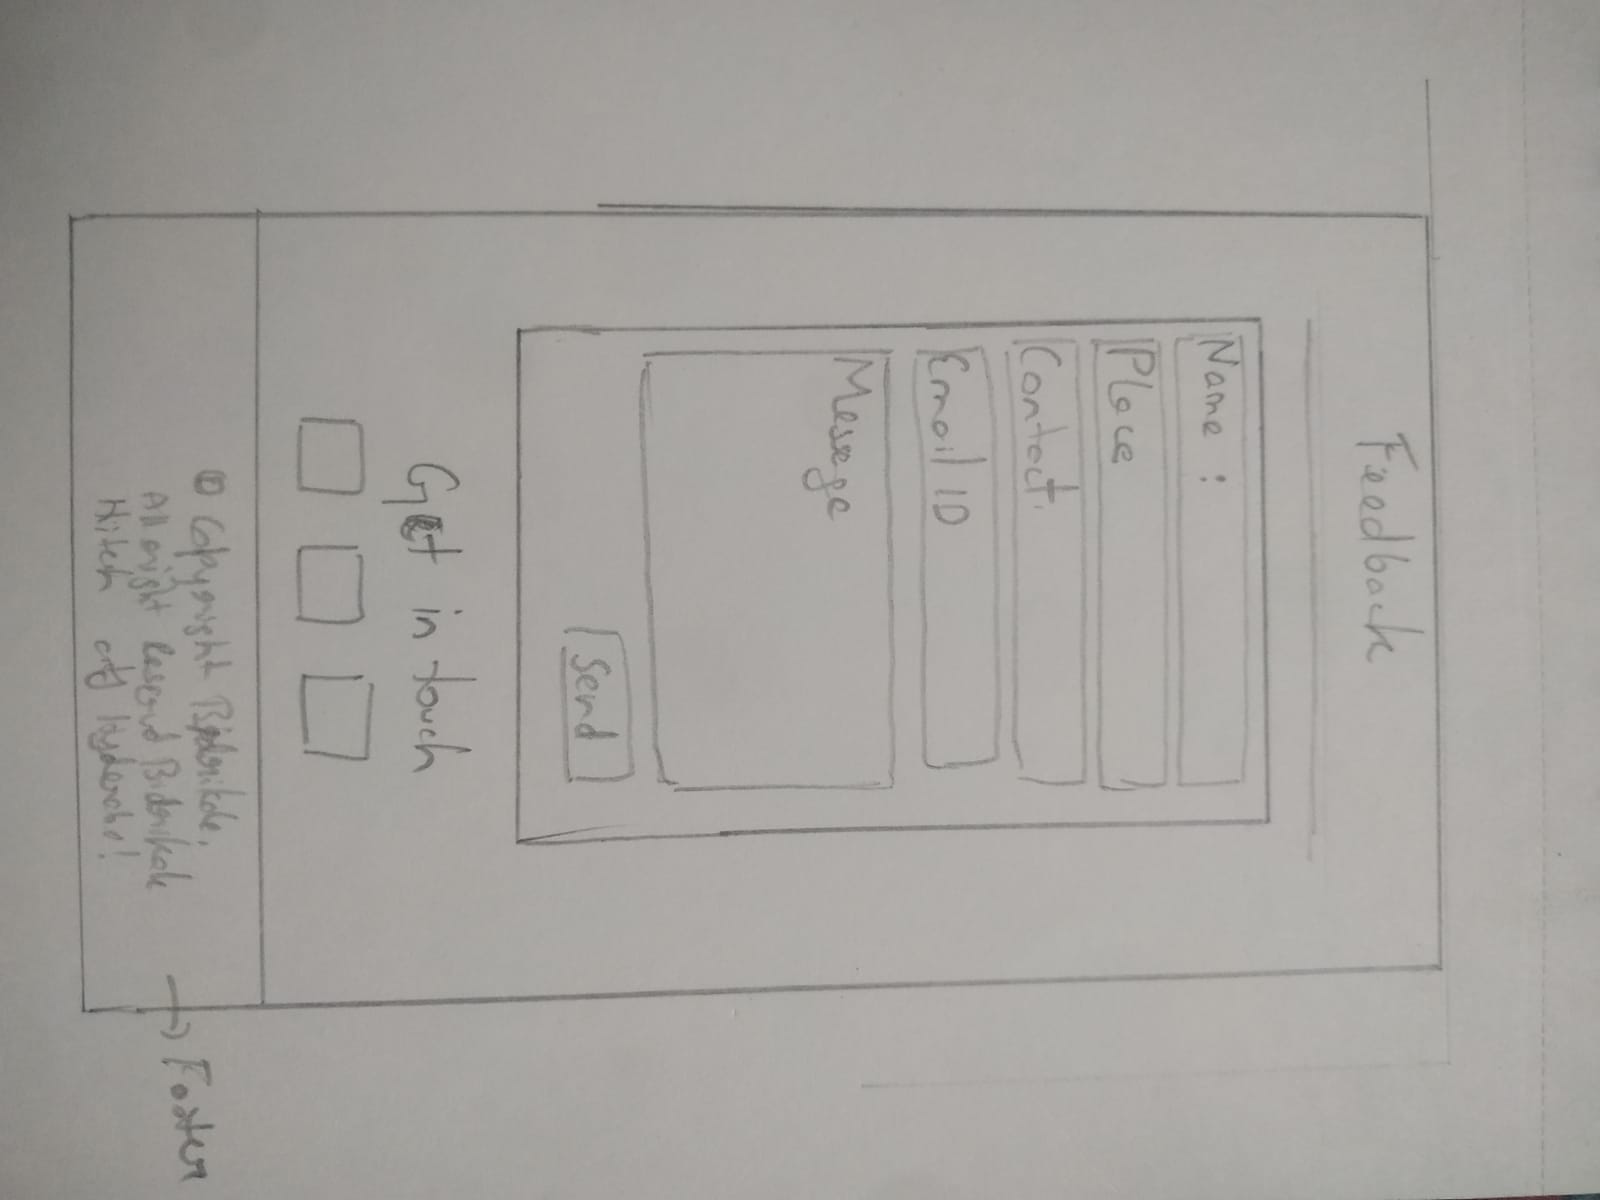 Feedback
Name :
Place
Contact.
Email ID
Message
Send
Get in touch
© Copyright Bidrikale.
All right Reserved Bidrikale
Hitech city Hyderabad!
Footer